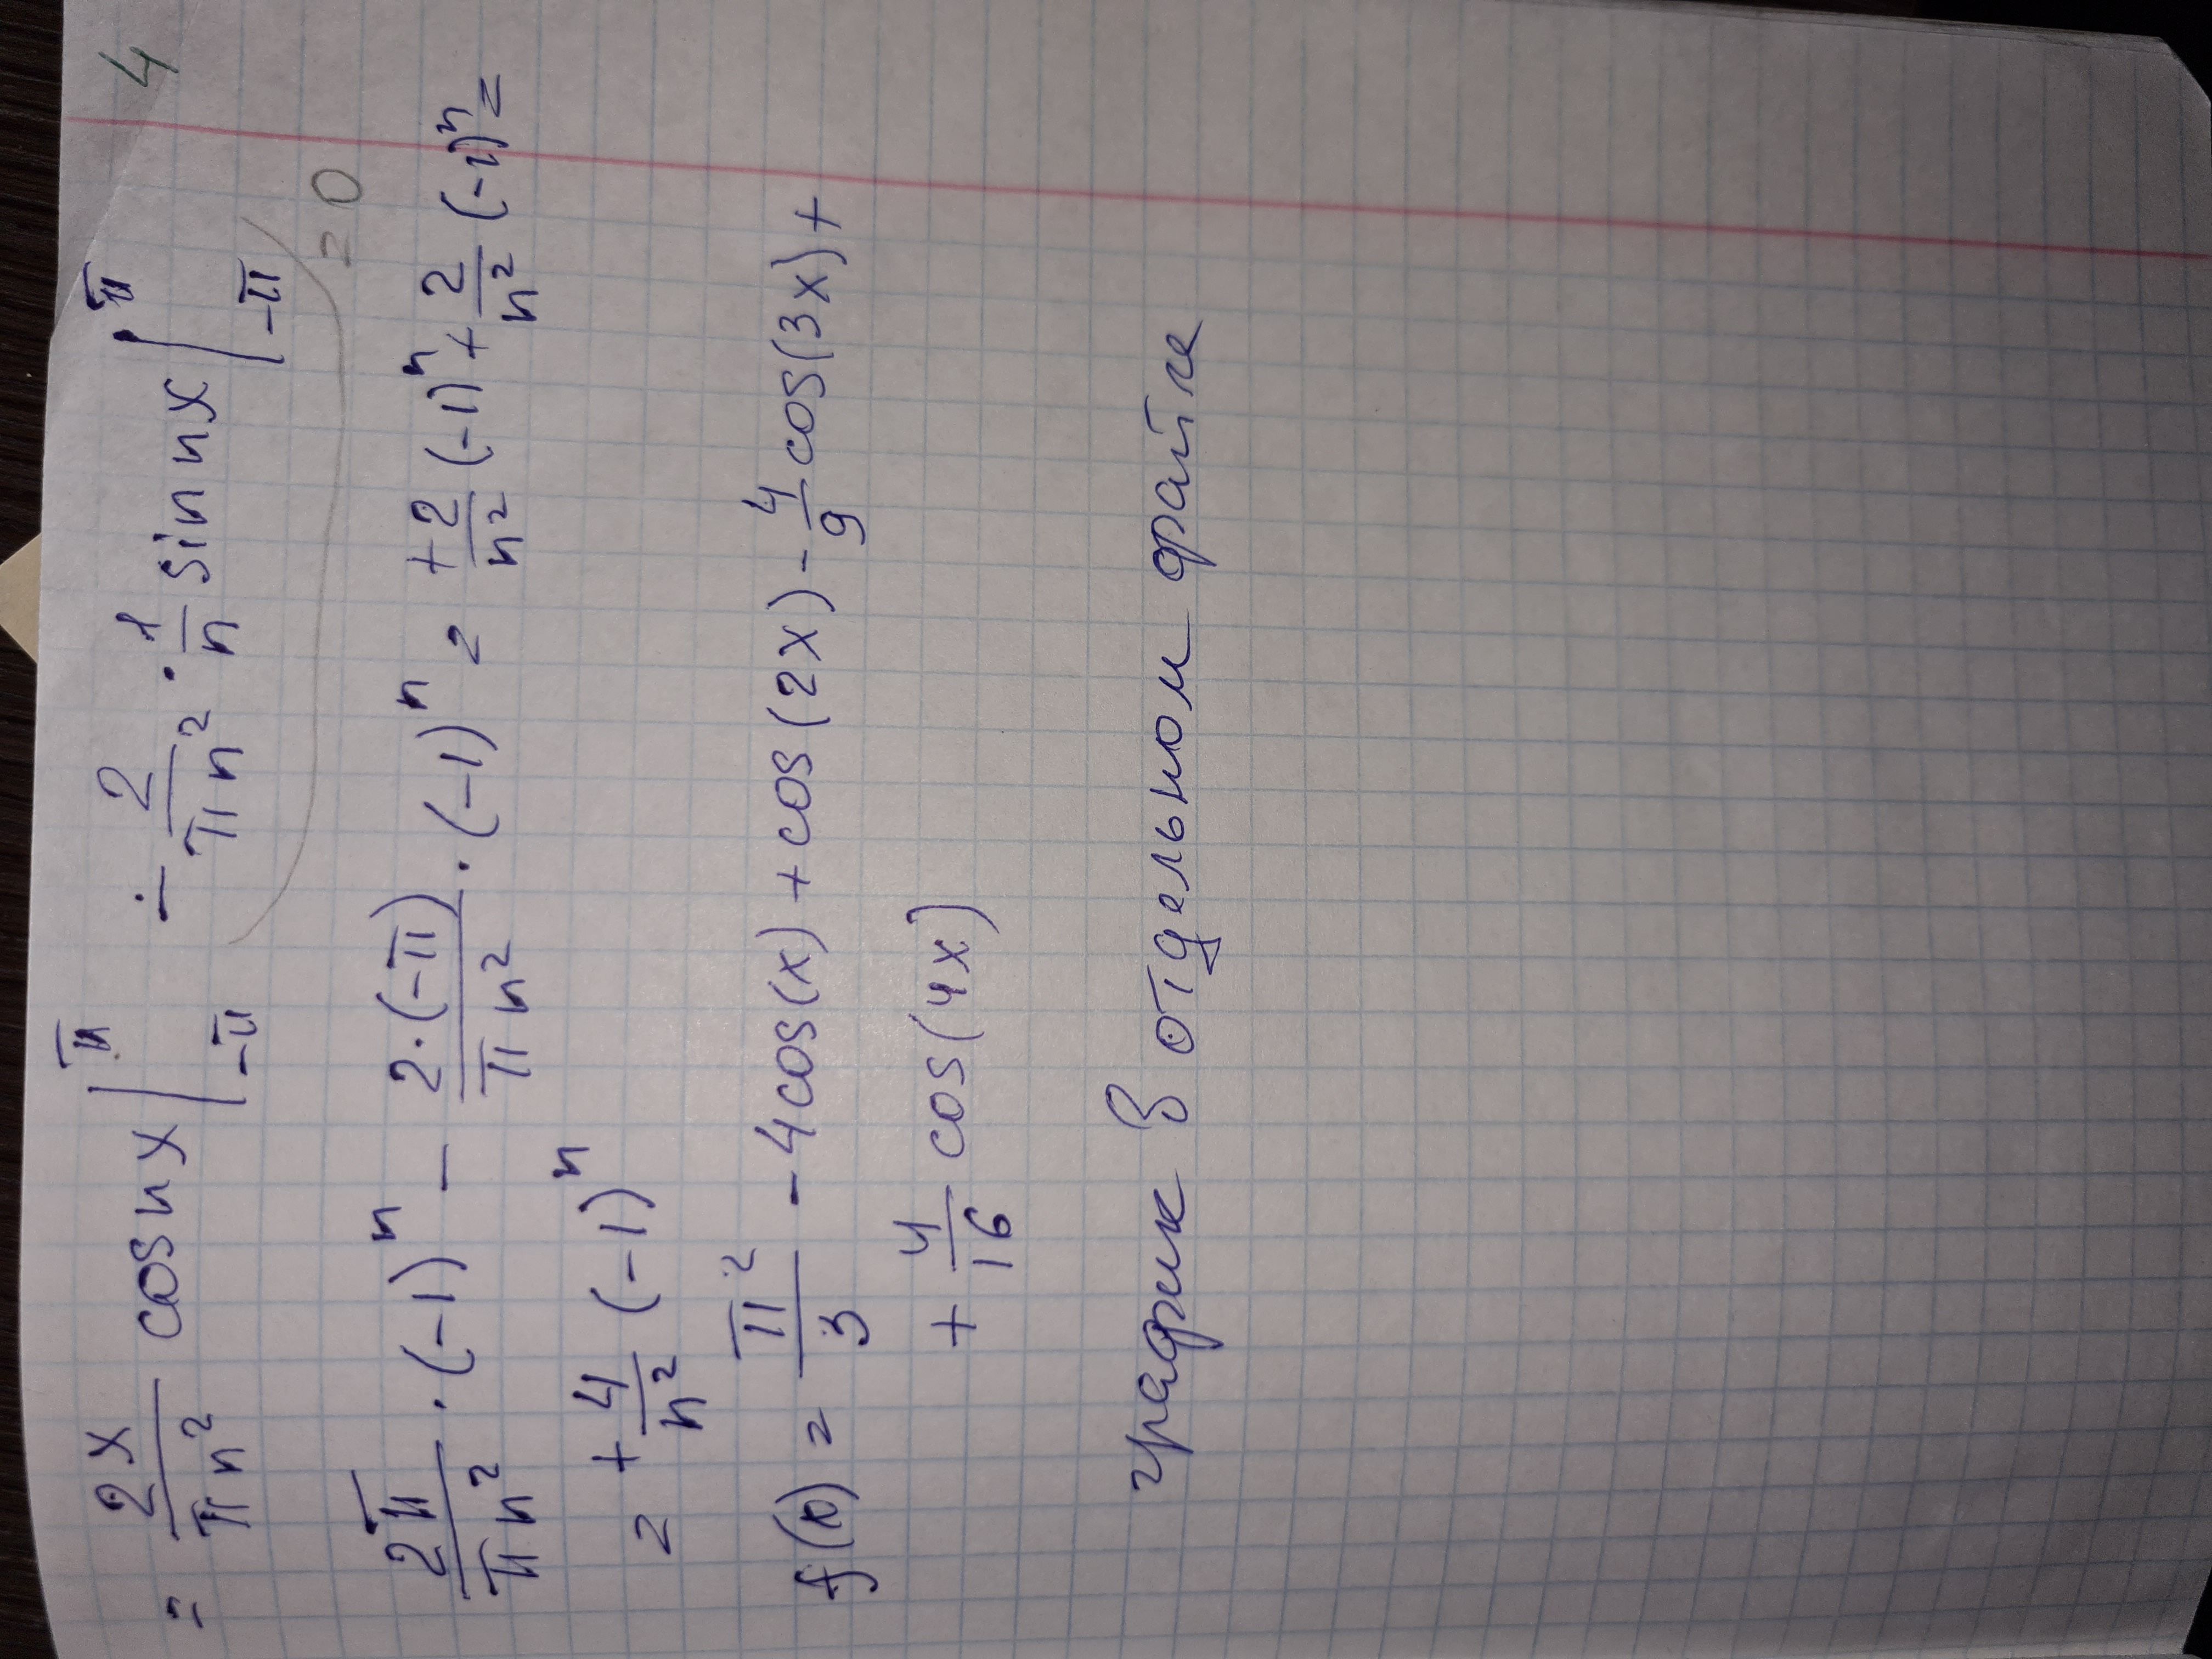 4
= 2x/πn² cos nx |_{-π}^{π} ∸ 2/πn² · 1/n sin nx |_{-π}^{π}
= 0
2π/πn² · (-1)ⁿ - 2·(-π)/πn² · (-1)ⁿ = +2/n² (-1)ⁿ + 2/n² (-1)ⁿ =
= +4/n² (-1)ⁿ
f(x) = π²/3 - 4cos(x) + cos(2x) - 4/9 cos(3x) +
+ 4/16 cos(4x)
график в отдельном файле